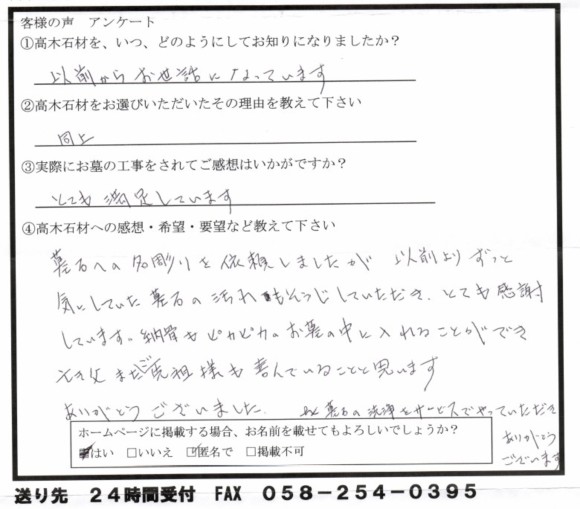 客様の声 アンケート
①高木石材を、いつ、どのようにしてお知りになりましたか？
以前からお世話になっています
②高木石材をお選びいただいたその理由を教えて下さい
同上
③実際にお墓の工事をされてご感想はいかがですか？
とても満足しています
④高木石材への感想・希望・要望など教えて下さい
墓石への名彫りを依頼しましたが 以前よりずっと
気にしていた墓石の汚れもそうじしていただき、とても感謝
しています。納骨もピカピカのお墓の中に入れることができ
父またご先祖様も喜んでいることと思います
ありがとうございました。 墓石の洗浄をサービスでやっていただき
ありがとう
ございます
ホームページに掲載する場合、お名前を載せてもよろしいでしょうか？
はい □いいえ 匿名で □掲載不可
送り先 24時間受付 FAX 058-254-0395